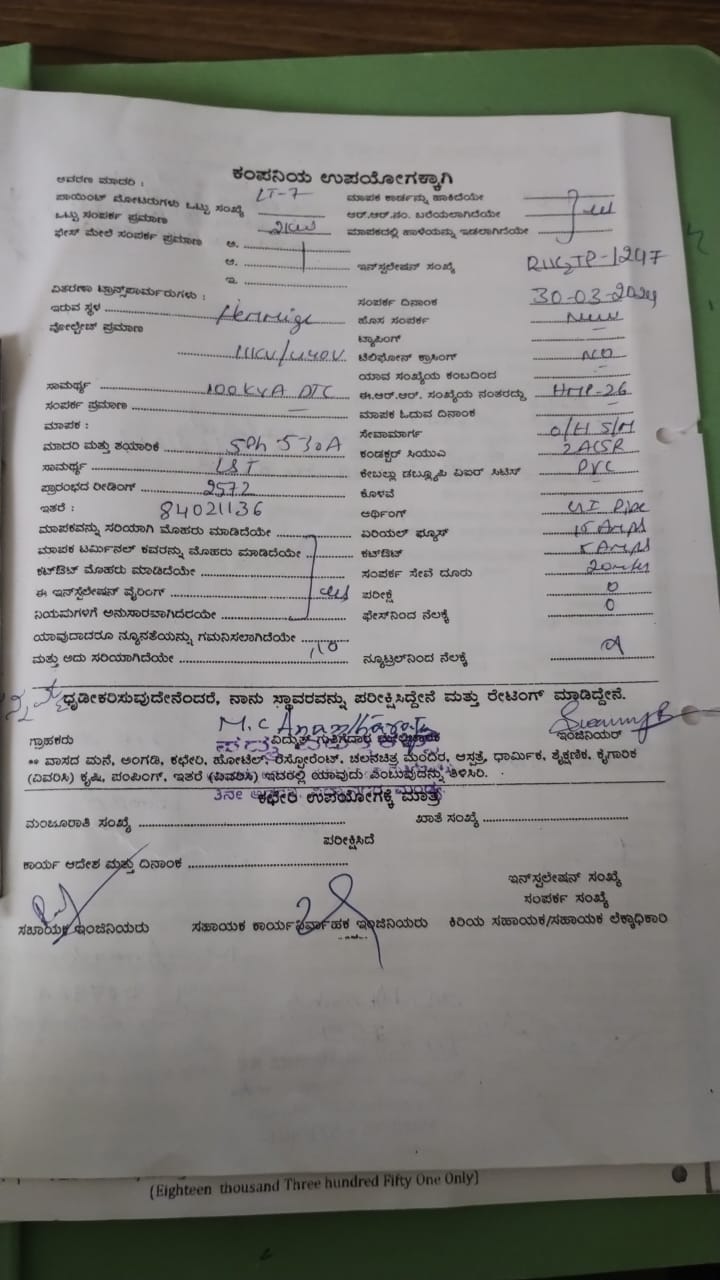 ಕಂಪನಿಯ ಉಪಯೋಗಕ್ಕಾಗಿ
ಆವರಣ ಮಾದರಿ : LT-7 ಮಾಪಕ ಕಾರ್ಡನ್ನು ಹಾಕಿದೆಯೇ
ಪಾಯಿಂಟ್ ಮೋಟರುಗಳು ಒಟ್ಟು ಸಂಖ್ಯೆ ಆರ್.ಆರ್.ನಂ. ಬರೆಯಲಾಗಿದೆಯೇ
ಒಟ್ಟು ಸಂಪರ್ಕ ಪ್ರಮಾಣ ಮಾಪಕದಲ್ಲಿ ಹಾಳೆಯನ್ನು ಇಡಲಾಗಿದೆಯೇ
ಫೇಸ್ ಮೇಲೆ ಸಂಪರ್ಕ ಪ್ರಮಾಣ ಅ.
ಆ. ಇನ್‌ಸ್ಟಲೇಷನ್ ಸಂಖ್ಯೆ
ಇ.
ವಿತರಣಾ ಟ್ರಾನ್ಸ್‌ಫಾರ್ಮರುಗಳು : ಸಂಪರ್ಕ ದಿನಾಂಕ 30-03-2024
ಇರುವ ಸ್ಥಳ Hemmige ಹೊಸ ಸಂಪರ್ಕ New
ವೋಲ್ಟೇಜ್ ಪ್ರಮಾಣ ಟ್ಯಾಪಿಂಗ್
11KV/440V ಟೆಲಿಫೋನ್ ಕ್ರಾಸಿಂಗ್ NO
ಯಾವ ಸಂಖ್ಯೆಯ ಕಂಬದಿಂದ
ಸಾಮರ್ಥ್ಯ 100KVA DTC ಈ.ಆರ್.ಆರ್. ಸಂಖ್ಯೆಯ ನಂತರದ್ದು HMP-26
ಸಂಪರ್ಕ ಪ್ರಮಾಣ ಮಾಪಕ ಓದುವ ದಿನಾಂಕ
ಮಾಪಕ : ಸೇವಾಮಾರ್ಗ O/H S/M
ಮಾದರಿ ಮತ್ತು ತಯಾರಿಕೆ 5-30A ಕಂಡಕ್ಟರ್ ಸಿಯುಎ 2ACSR
ಸಾಮರ್ಥ್ಯ L&T ಕೇಬಲ್ಲು ಡಬ್ಲ್ಯೂಪಿ ಏಐರ್ ಸಿಟಿಸ್ PVC
ಪ್ರಾರಂಭದ ರೀಡಿಂಗ್ 2572 ಕೊಳವೆ
ಇತರೆ : 84021136 ಅರ್ಥಿಂಗ್ GI Pipe
ಮಾಪಕವನ್ನು ಸರಿಯಾಗಿ ಮೊಹರು ಮಾಡಿದೆಯೇ ಏರಿಯಲ್ ಫ್ಯೂಸ್ 15 Amps
ಮಾಪಕ ಟರ್ಮಿನಲ್ ಕವರನ್ನು ಮೊಹರು ಮಾಡಿದೆಯೇ ಕಟ್‌ಔಟ್ 5 Amps
ಕಟ್‌ಔಟ್ ಮೊಹರು ಮಾಡಿದೆಯೇ ಸಂಪರ್ಕ ಸೇವೆ ದೂರು 20mts
ಈ ಇನ್‌ಸ್ಟಲೇಷನ್ ವೈರಿಂಗ್ yes ಪರೀಕ್ಷೆ 0
ನಿಯಮಗಳಿಗೆ ಅನುಸಾರವಾಗಿದೆಯೇ ಫೇಸ್‌ನಿಂದ ನೆಲಕ್ಕೆ 0
ಯಾವುದಾದರೂ ನ್ಯೂನತೆಯನ್ನು ಗಮನಿಸಲಾಗಿದೆಯೇ
ಮತ್ತು ಅದು ಸರಿಯಾಗಿದೆಯೇ no ನ್ಯೂಟ್ರಲ್‌ನಿಂದ ನೆಲಕ್ಕೆ
ಧೃಡೀಕರಿಸುವುದೇನೆಂದರೆ, ನಾನು ಸ್ಥಾವರವನ್ನು ಪರೀಕ್ಷಿಸಿದ್ದೇನೆ ಮತ್ತು ರೇಟಿಂಗ್ ಮಾಡಿದ್ದೇನೆ.
M.C
ಗ್ರಾಹಕರು ವಿದ್ಯುತ್ ಗುತ್ತಿಗೆದಾರ ಇಂಜಿನಿಯರ್
** ವಾಸದ ಮನೆ, ಅಂಗಡಿ, ಕಛೇರಿ, ಹೋಟೆಲ್, ರೆಸ್ಟೋರೆಂಟ್, ಚಲನಚಿತ್ರ ಮಂದಿರ, ಆಸ್ಪತ್ರೆ, ಧಾರ್ಮಿಕ, ಶೈಕ್ಷಣಿಕ, ಕೈಗಾರಿಕ
(ವಿವರಿಸಿ) ಕೃಷಿ, ಪಂಪಿಂಗ್, ಇತರೆ (ವಿವರಿಸಿ) ಇದರಲ್ಲಿ ಯಾವುದು ಎಂಬುವುದನ್ನು ತಿಳಿಸಿರಿ.
ಕಛೇರಿ ಉಪಯೋಗಕ್ಕೆ ಮಾತ್ರ
ಮಂಜೂರಾತಿ ಸಂಖ್ಯೆ ಖಾತೆ ಸಂಖ್ಯೆ
ಪರೀಕ್ಷಿಸಿದೆ
ಕಾರ್ಯ ಆದೇಶ ಮತ್ತು ದಿನಾಂಕ
ಇನ್‌ಸ್ಟಲೇಷನ್ ಸಂಖ್ಯೆ
ಸಂಪರ್ಕ ಸಂಖ್ಯೆ
ಸಹಾಯಕ ಇಂಜಿನಿಯರು ಸಹಾಯಕ ಕಾರ್ಯನಿರ್ವಾಹಕ ಇಂಜಿನಿಯರು ಕಿರಿಯ ಸಹಾಯಕ/ಸಹಾಯಕ ಲೆಕ್ಕಾಧಿಕಾರಿ
(Eighteen thousand Three hundred Fifty One Only)